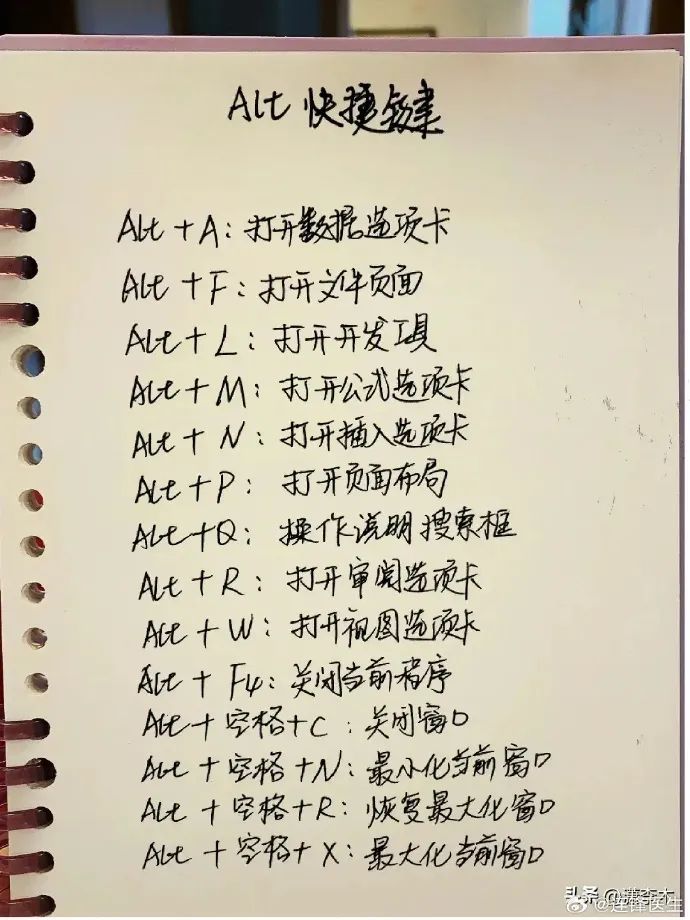 Alt 快捷键
Alt + A: 打开数据选项卡
Alt + F: 打开文件页面
Alt + L: 打开开发工具
Alt + M: 打开公式选项卡
Alt + N: 打开插入选项卡
Alt + P: 打开页面布局
Alt + Q: 操作说明搜索框
Alt + R: 打开审阅选项卡
Alt + W: 打开视图选项卡
Alt + F4: 关闭当前程序
Alt + 空格 + C: 关闭窗口
Alt + 空格 + N: 最小化当前窗口
Alt + 空格 + R: 恢复最大化窗口
Alt + 空格 + X: 最大化当前窗口
头条
医生